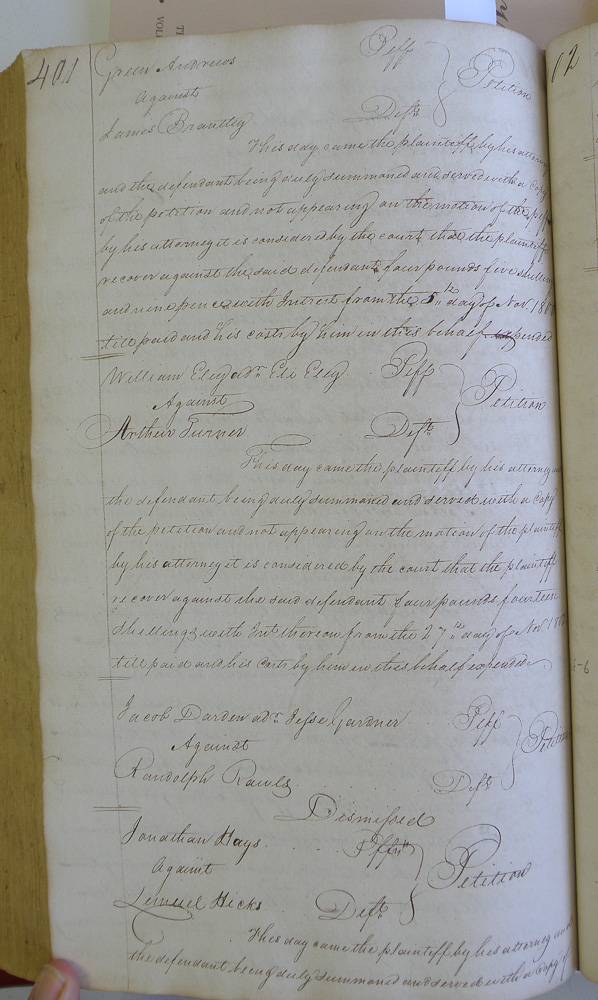 401
Green Andrews Plff
Against Petition
James Brantley Deft
This day came the plaintiff by his attorney
and the defendant being duly summoned and served with a Copy
of the petition and not appearing on the motion of the plff
by his attorney it is considered by the court that the plaintiff
recover against the said defendant four pounds five shillings
and nine pence with Interest from the 5th day of Nov. 180
till paid and his costs by him in this behalf expended
William Eley adr. Eli Eley Plff
Against Petition
Arthur Turner Deft
This day came the plaintiff by his attorney and
the defendant being duly summoned and served with a Copy
of the petition and not appearing on the motion of the plaintiff
by his attorney it is considered by the court that the plaintiff
recover against the said defendant four pounds fourteen
Shillings with Int. thereon from the 27th day of Nov. 180
till paid and his Costs by him in this behalf expended
Jacob Darden adr. Jesse Gardner Plff
Against Petition
Randolph Rawls Deft
Dismissed
Jonathan Hays Plff
Against Petition
Lemuel Hicks Deft
This day came the plaintiff by his attorney and
the defendant being duly summoned and served with a Copy of